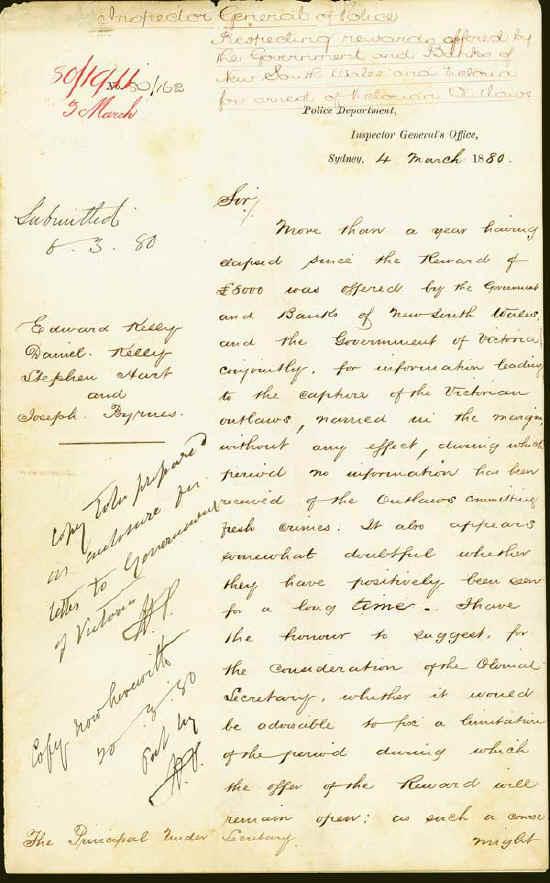 Inspector General of Police
Respecting rewards offered by
the Government and Banks of
New South Wales and Victoria
for arrest of Victorian Outlaws
80/1911
No. 80/162
3 March
Police Department,
Inspector General's Office,
Sydney, 4 March 1880.
Submitted
6. 3. 80
Edward Kelly
Daniel Kelly
Stephen Hart
and
Joseph Byrnes.
Sir,
More than a year having
elapsed since the Reward of
£8000 was offered by the Government
and Banks of New South Wales,
and the Government of Victoria
conjointly, for information leading
to the capture of the Victorian
outlaws, named in the margin,
without any effect, during which
period no information has been
received of the Outlaws committing
fresh crimes: It also appears
somewhat doubtful whether
they have positively been seen
for a long time. I have
the honour to suggest, for
the consideration of the Colonial
Secretary, whether it would
be advisable to fix a limitation
of the period during which
the offer of the Reward will
remain open: as such a course
might
Copy to be prepared
as enclosure for
letter to Government
of Victoria
Copy now herewith
20. 3. 80
The Principal Under Secretary.